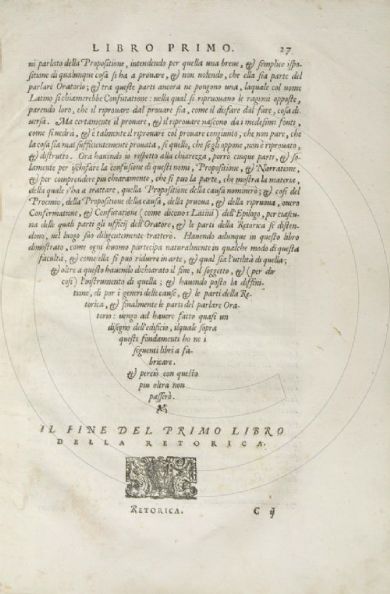 LIBRO PRIMO. 27
ni parlato della Propositione, intendendo per quella una breue, & semplice ispo-
sitione di qualunque cosa si ha a prouare, & non uolendo, che ella sia parte del
parlare Oratorio; & tra queste parti ancora ne pongono una, laquale col nome
Latino si chiamerebbe Confutatione: nella qual si ripruouano le ragioni opposte,
parendo loro, che il riprouare dal prouare sia, come il disfare dal fare, cosa di-
uersa. Ma certamente il prouare, & il riprouare nascono da i medesimi fonti,
come si uedrà, & è talmente il riprouare col prouare congiunto, che non pare, che
la cosa sia mai sufficientemente prouata, se quello, che se gli oppone, non è riprouato,
& distrutto. Ora hauendo io rispetto alla chiarezza, porrò cinque parti, & so-
lamente per ischifare la confusione di questi nomi, Propositione, & Narratione,
& per comprendere piu chiaramente, che si puo la parte, che mostra la materia,
della quale s'ha a trattare, quella Propositione della causa nominerò; & cosi del
Proemio, della Propositione della causa, della pruoua, & della ripruoua, ouero
Confermatione, & Confutatione (come dicono i Latini) dell'Epilogo, per ciascu-
na delle quali parti gli ufficij dell'Oratore, & le parti della Retorica si disten-
dono, nel luogo suo diligentemente tratterò. Hauendo adunque in questo libro
dimostrato, come ogni huomo partecipa naturalmente in qualche modo di questa
facultà, & come ella si puo ridurre in arte, & qual sia l'utilità di quella;
& oltre a questo hauendo dichiarato il fine, il soggetto, & (per dir
cosi) l'instrumento di quella; & hauendo posto la diffini-
tione, di poi i generi delle cause, & le parti della Re-
torica, & finalmente le parti del parlare Ora-
torio: uengo ad hauere fatto quasi un
disegno dell'edificio, ilquale sopra
questi fondamenti ho ne i
seguenti libri a fa-
bricare.
& perciò con questo
piu oltra non
passerò.
IL FINE DEL PRIMO LIBRO
DELLA RETORICA.
RETORICA. C ij